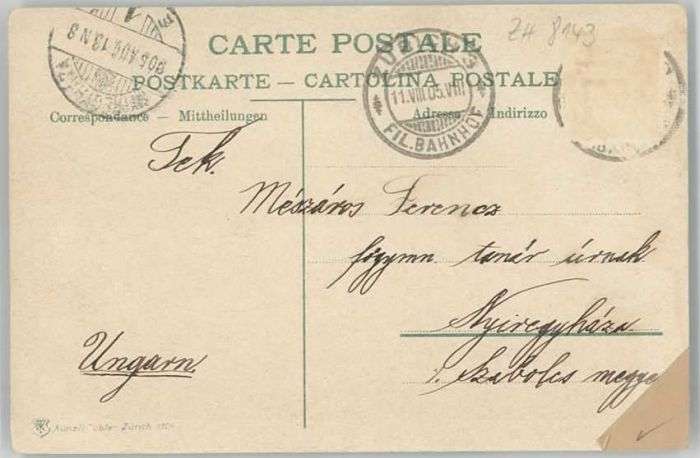 ZH 8143
CARTE POSTALE
POSTKARTE – CARTOLINA POSTALE
Correspondance — Mittheilungen
Adresse — Indirizzo
11.VIII.05.VIII
FIL.BAHNHOF
905 AUG 13 N 8
Tek.
Mészáros Ferencz
főgymn. tanár úrnak
Nyíregyháza
Szabolcs megye
Ungarn
Zürich